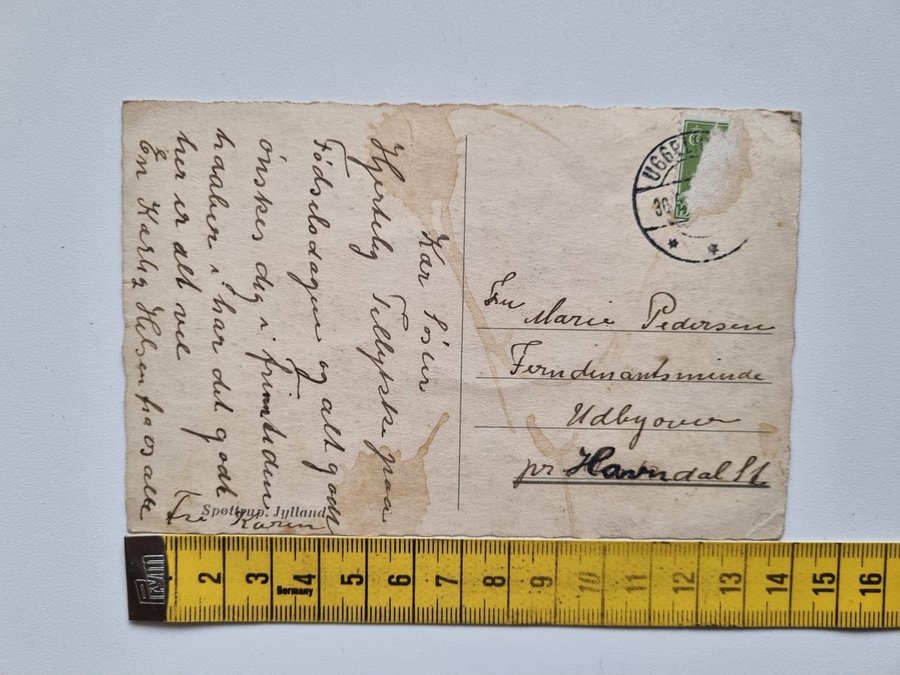 Kær Söster
Hjertelig Tillykke paa
Födselsdagen og alt godt
önskes dig i fremtiden
haaber i har det godt
her er alt vel
En Kærlig Hilsen fra os alle
Fra Karen
Spøttrup. Jylland
UGGE
30
Fru Marie Pedersen
Ferndinantsminde
Udbyover
pr Havndal St
2 3 4 5 6 7 8 9 10 11 12 13 14 15 16
Germany